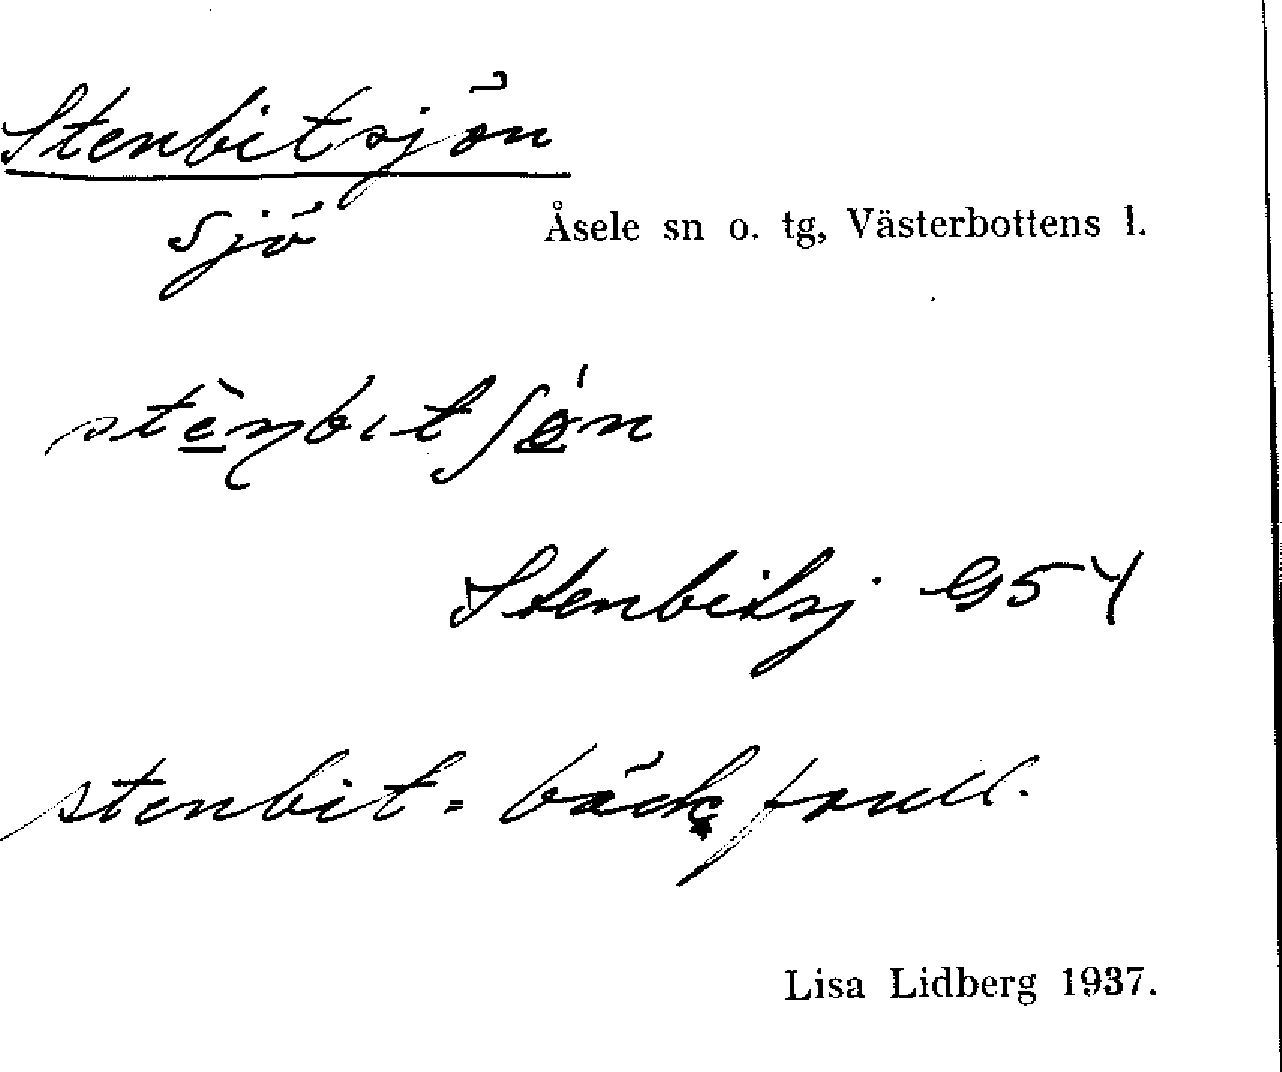 Stenbitsjön
sjö Åsele sn o. tg, Västerbottens l.
stènbɪtʃǿn
Stenbitsj G54
stenbit = bäckforell.
Lisa Lidberg 1937.